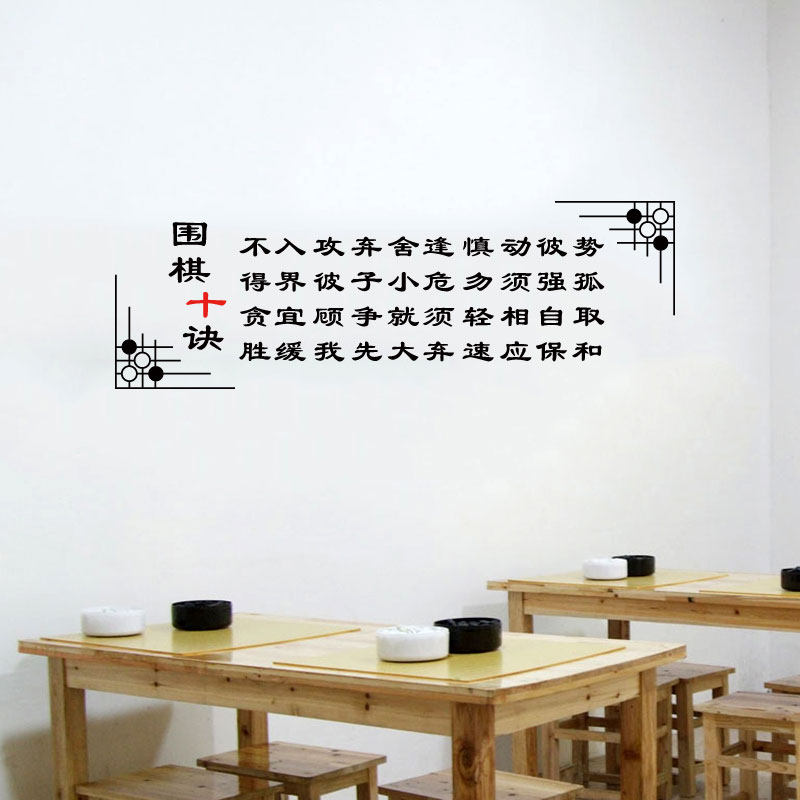 围棋十诀
不得贪胜
入界宜缓
攻彼顾我
弃子争先
舍小就大
逢危须弃
慎勿轻速
动须相应
彼强自保
势孤取和